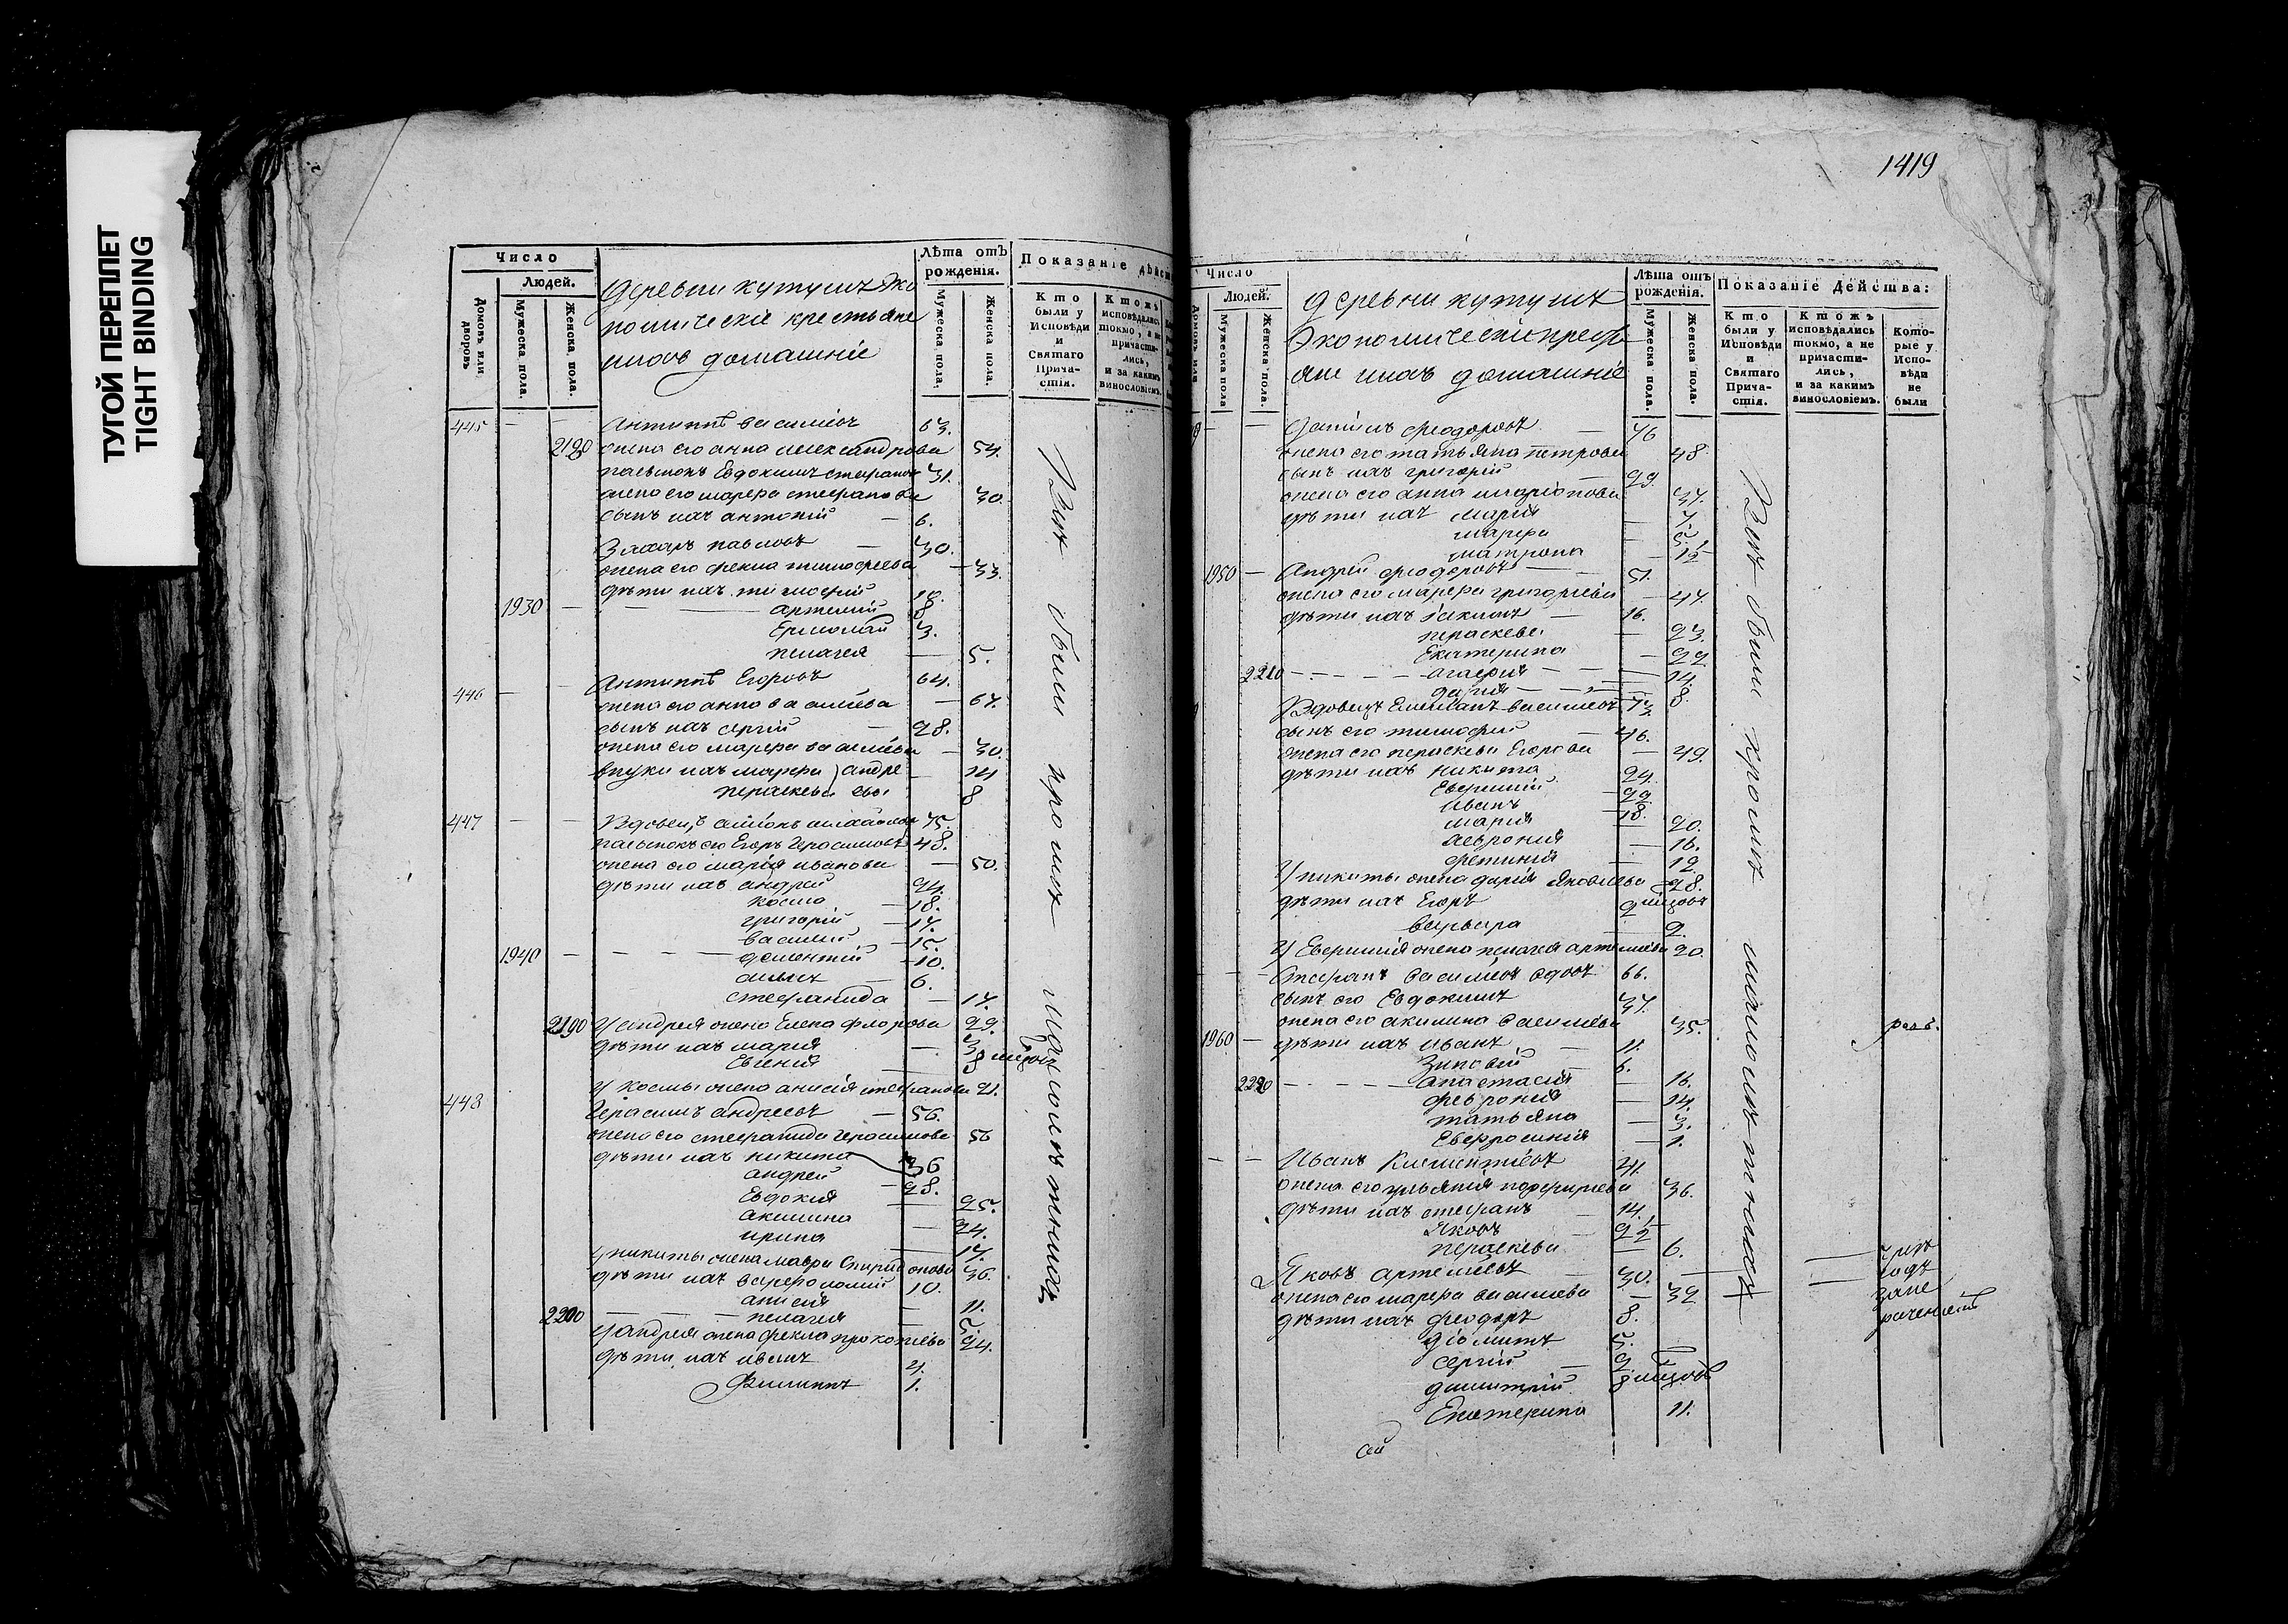 ТУГОЙ ПЕРЕПЛЕТ
TIGHT BINDING
Число
Людей.
Домовъ или дворовъ
Мужеска пола.
Женска пола.
деревни кутушъ Эко
номическіе крестьяне
ихъ домашніе
Лѣта отъ рожденія.
Мужеска пола.
Женска пола.
Показаніе дѣйст
Кто были у Исповѣди и Святаго Прича-стія.
Ктожъ исповѣдались токмо, а не причасти-лись, и за какимъ винословіемъ.
445 Антипъ васильевъ 63.
2180 жена его анна александрова 54.
пасынокъ Евдокимъ стефановъ 31.
жена его марѳа стефанова 30.
сынъ ихъ антоній 6.
Захаръ павловъ 30.
жена его фекла тимофеева 33.
дѣти ихъ тимофей 10.
1930 артемій 8
Ермолай 3.
пелагея 5.
446 Антипъ Егоровъ 64.
жена его анна васильева 67.
сынъ ихъ сергій 28.
жена его марѳа васильева 30.
внуки ихъ марѳа андре 14
параскева 8
447 Вдовецъ 75.
пасынокъ его Егоръ Герасимовъ 48.
жена его марія иванова 50.
дѣти ихъ андрей 24.
косма 18.
григорій 17.
василій 15.
1940 дементій 10.
6.
стефанида 17.
2190 У андрея жена Елена флорова 29.
дѣти ихъ марія 3
Евгенія 8 мцовъ
У Космы жена анисія стефанова 21.
448 Герасимъ андреевъ 56.
жена его стефанида герасимова 56
дѣти ихъ никита 36
андрей 28.
Евдокія 25.
акилина 24.
ирина 17.
У никиты жена мавра Спиридонова 36.
дѣти ихъ варфоломій 10.
анисія 11.
2200 пелагія 5.
У андрея жена фекла прокопьева 24.
дѣти ихъ иванъ 4.
Филиппъ 1.
Всѣ были кромѣ малолѣтныхъ
1419
Число
Людей.
Домовъ или
Мужеска пола
Женска пола.
деревни кутушъ
Экономическіе кресть
яне ихъ домашніе
Лѣта отъ рожденія.
Мужеска пола.
Женска пола.
Показаніе Действа:
Кто были у Исповѣди и Святаго Прича-стія.
Ктожъ исповѣдались токмо, а не причасти-лись, и за какимъ винословіемъ.
Кото-рые у Испо-вѣди не были
Данилъ феодоровъ 46
жена его татьяна петрова 48.
сынъ ихъ григорій 29.
жена его анна иларіонова 37.
дѣти ихъ марія 7.
марѳа 5.
матрона 1½
1950 Андрей феодоровъ 51.
жена его марѳа григорьева 47.
дѣти ихъ іакимъ 16.
параскева 23.
Екатерина 22
2210 агафія 14.
дарія 8.
Вдовецъ Емеліанъ васильевъ 73.
сынъ его тимофей 46.
жена его параскева Егорова 49.
дѣти ихъ никита 24.
Евфимій 22.
Иванъ 18.
марія 20.
февронія 16.
фетинія 12
У никиты жена дарія Яковлева 28.
дѣти ихъ Егоръ 9 мцовъ
варвара 2.
У Евфимія жена пелагія артемьева 20.
Стефанъ васильевъ вдовъ 66.
сынъ его Евдокимъ 37.
жена его акилина васильева 35.
1960 дѣти ихъ Иванъ 11.
Зиновій 6.
2220 анастасія 16.
февронія 14.
татьяна 3.
Евфросинія 1.
Иванъ Климентьевъ 41.
жена его ульянія порфирьева 36.
дѣти ихъ стефанъ 14.
Яковъ 2½
параскева 6.
Яковъ артемьевъ 30.
жена его марѳа васильева 32
дѣти ихъ феодоръ 8.
діомидъ 5.
сергій 2.
димитрій 8 мцовъ
Екатерина 11.
Всѣ были кромѣ малолѣтныхъ